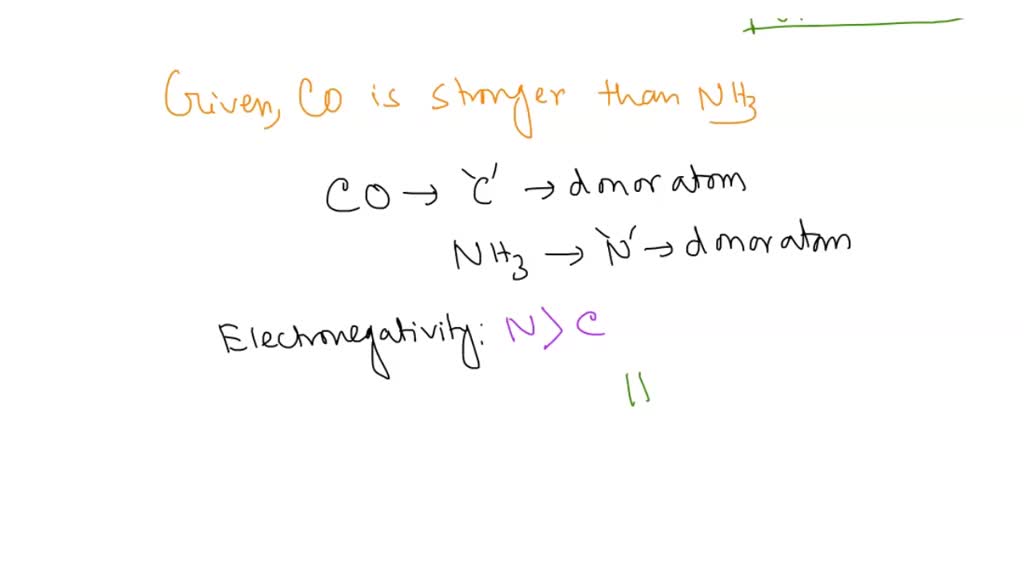 Given, CO is stronger than NH3
CO → 'C' → donor atom
NH3 → 'N' → donor atom
Electronegativity: N > C